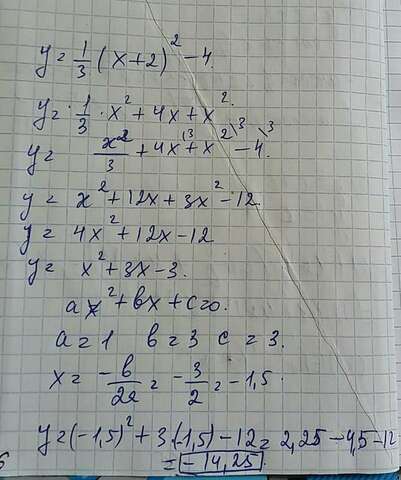 y = 1/3 (x+2)² - 4.
y = 1/3 · x² + 4x + x².
y = x²/3 + 4x\3 + x²\3 - 4\3.
y = x² + 12x + 3x² - 12.
y = 4x² + 12x - 12
y = x² + 3x - 3.
ax² + bx + c = 0.
a = 1 b = 3 c = 3.
x = -b/2a = -3/2 = -1,5.
y = (-1,5)² + 3·(-1,5) - 12 = 2,25 - 4,5 - 12
= -14,25.